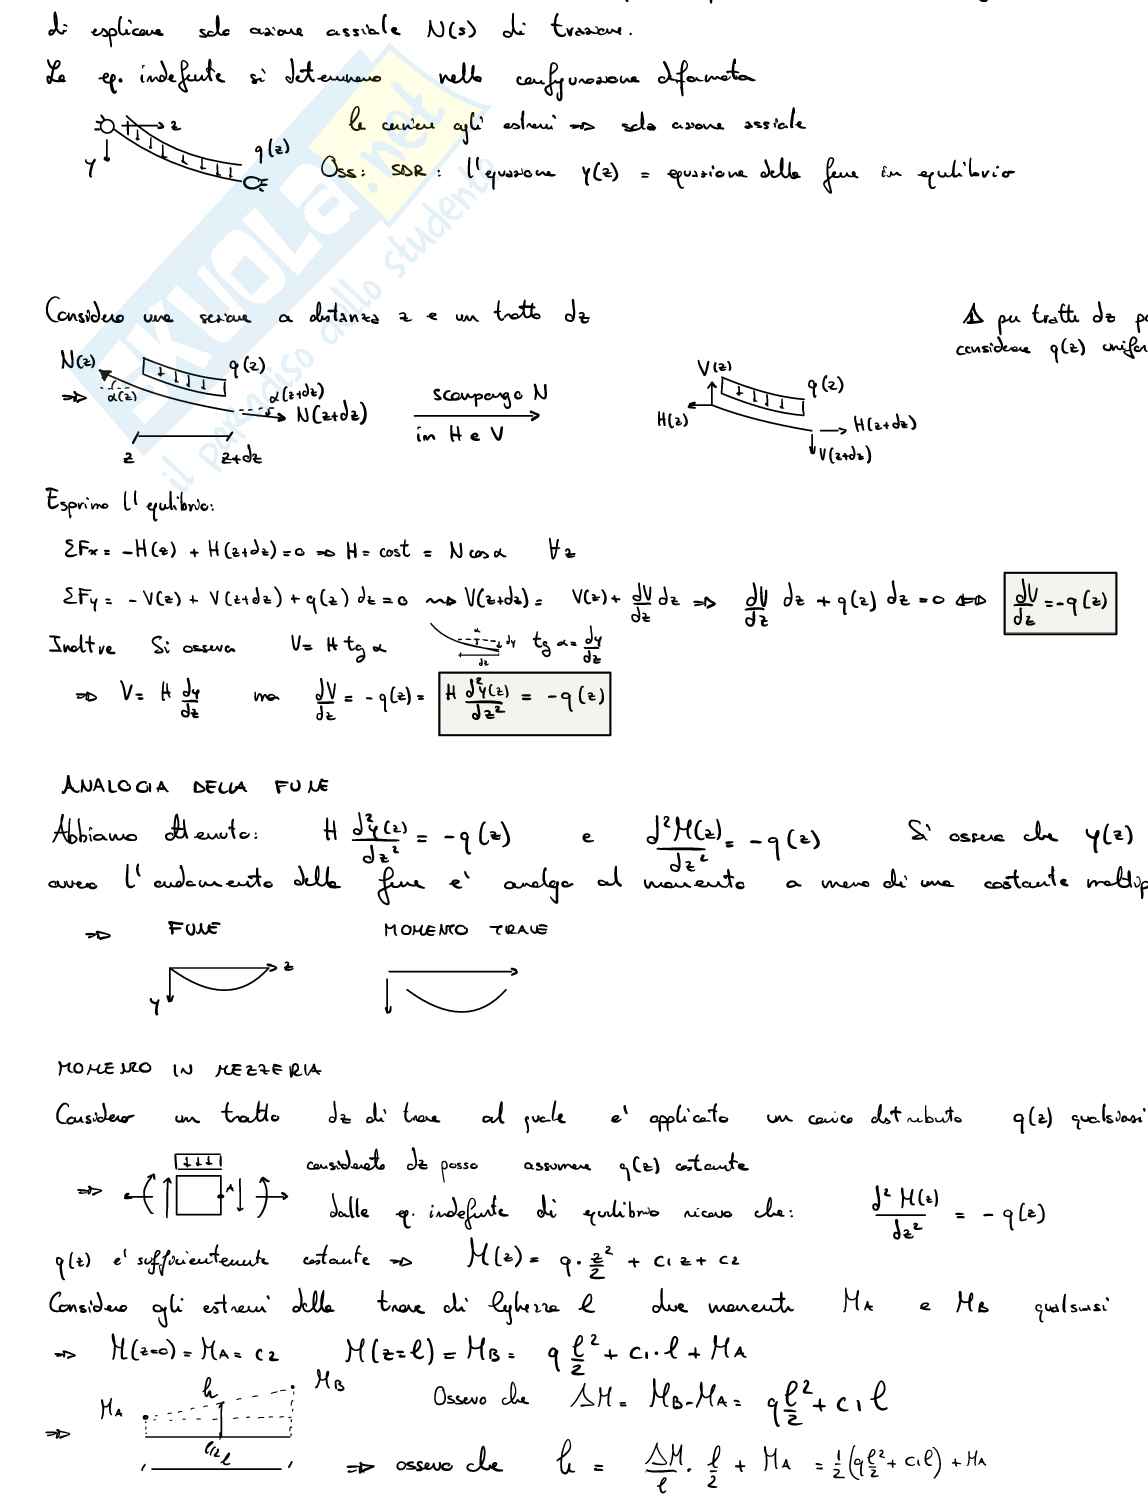 di esplicare solo azione assiale N(s) di trazione.
Le eq. indefinite si determinano nella configurazione deformata
z
le cerniere agli estremi => solo azione assiale
q(z)
y
Oss: SDR: l'equazione y(z) = equazione della fune in equilibrio
SKUOLA.net
il paradiso dello studente
Considero una sezione a distanza z e un tratto dz
⚠ per tratti dz
considerare q(z)
N(z) q(z) α(z) α(z+dz) N(z+dz)
z z+dz
scompongo N
in H e V
V(z) q(z) H(z) H(z+dz) V(z+dz)
Esprimo l'equilibrio:
ΣFx = -H(z) + H(z+dz) = 0 => H = cost = N cos α ∀z
ΣFy = -V(z) + V(z+dz) + q(z) dz = 0 ~> V(z+dz) = V(z) + dV/dz dz => dV/dz dz + q(z) dz = 0 <=> dV/dz = -q(z)
Inoltre Si osserva V = H tg α α dy dz tg α = dy/dz
=> V = H dy/dz ma dV/dz = -q(z) = H d²y(z)/dz² = -q(z)
ANALOGIA DELLA FUNE
Abbiamo ottenuto: H d²y(z)/dz² = -q(z) e d²M(z)/dz² = -q(z) Si osserva che y(z)
ovvero l'andamento della fune e' analogo al momento a meno di una costante
=> FUNE MOMENTO TRAVE
z
y
MOMENTO IN MEZZERIA
Considero un tratto dz di trave al quale e' applicato un carico distribuito q(z) qualsiasi
considerato dz posso assumere q(z) costante
=> A
dalle eq. indefinite di equilibrio ricavo che: d²M(z)/dz² = -q(z)
q(z) e' sufficientemente costante => M(z) = q·z²/2 + c1 z + c2
Considero agli estremi della trave di lunghezza l due momenti MA e MB qualsiasi
=> M(z=0) = MA = c2 M(z=l) = MB = q l²/2 + c1·l + MA
MA h MB
Osservo che ΔM = MB-MA = q l²/2 + c1 l
=> l/2 l
=> osservo che h = ΔM/l · l/2 + MA = 1/2 (q l²/2 + c1 l) + MA